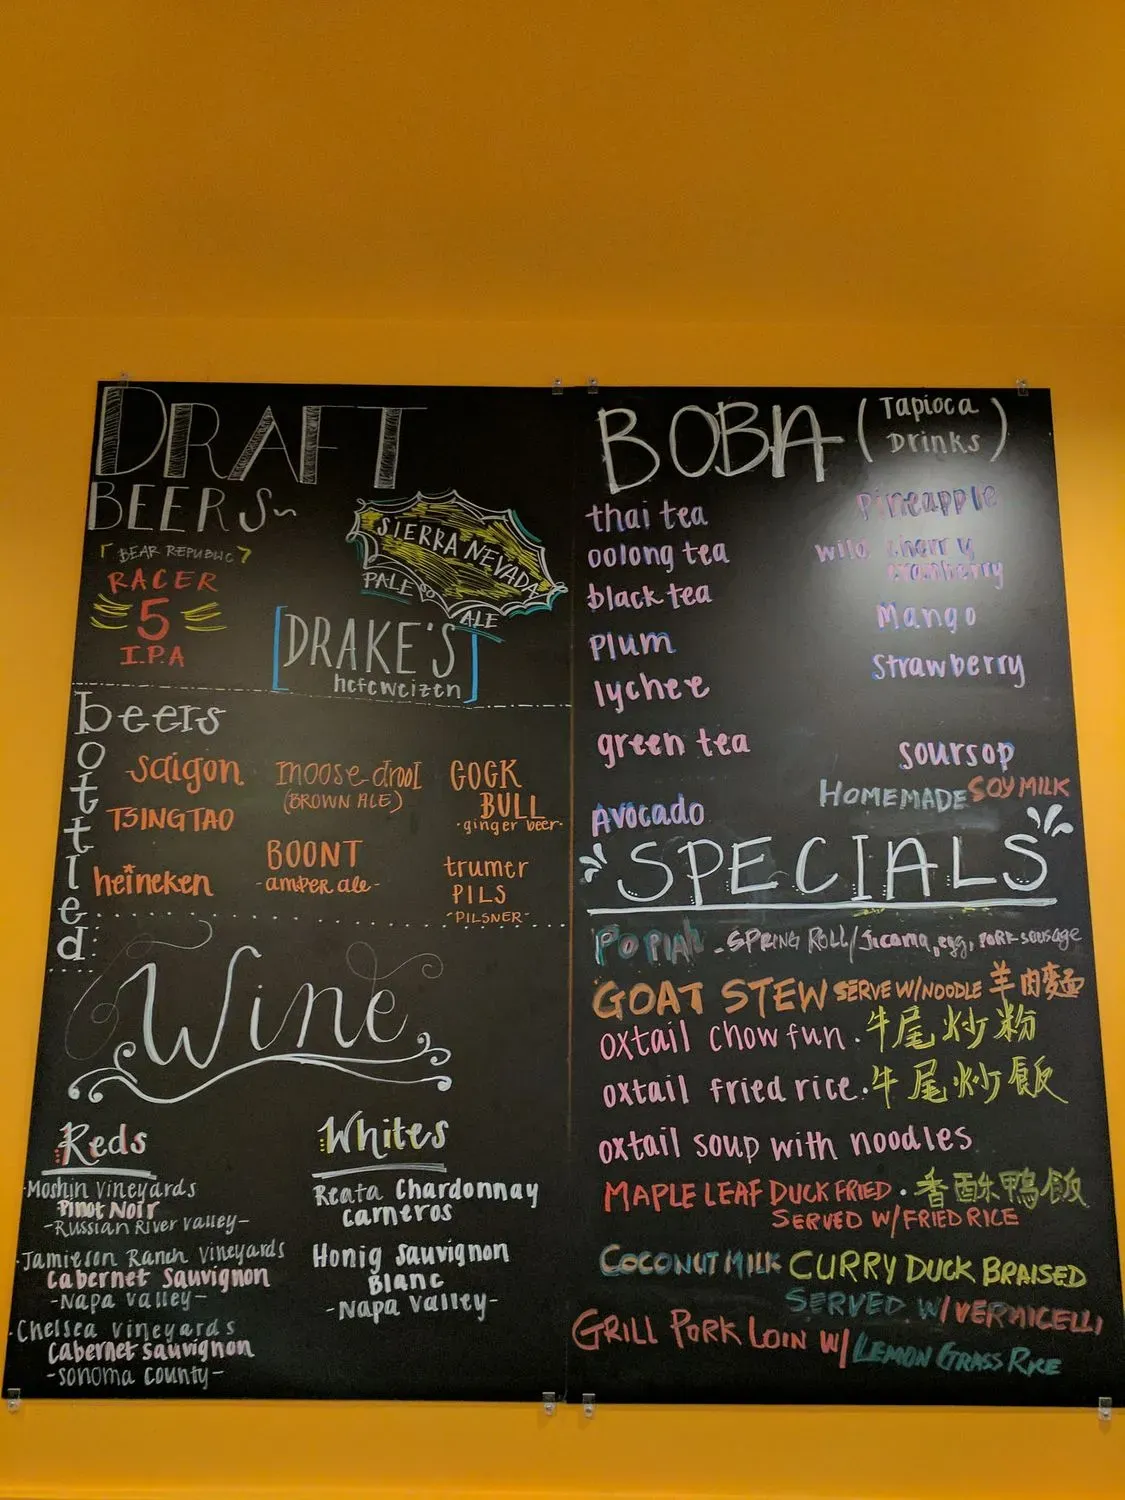 DRAFT
BEERS~
BEAR REPUBLIC
RACER
5
I.P.A
SIERRA NEVADA
PALE
ALE
DRAKE'S
hefeweizen
bottled
beers
saigon
TSINGTAO
heineken
moose-drool
(BROWN ALE)
BOONT
-amper ale-
COCK
BULL
-ginger beer-
trumer
PILS
-PILSNER-
Wine
Reds
-Moshin Vineyards
Pinot Noir
-Russian River Valley-
-Jamieson Ranch Vineyards
Cabernet Sauvignon
-Napa Valley-
-Chelsea Vineyards
Cabernet Sauvignon
-Sonoma County-
Whites
Reata Chardonnay
Carneros
Honig Sauvignon
Blanc
-Napa Valley-
BOBA (Tapioca
Drinks)
thai tea
oolong tea
black tea
Plum
lychee
green tea
Avocado
Pineapple
wild cherry
cranberry
Mango
Strawberry
soursop
HOMEMADE SOY MILK
SPECIALS
PO PIAH - SPRING ROLL/jicama, egg, PORK sausage
GOAT STEW SERVE W/NOODLE 羊肉麵
oxtail chow fun. 牛尾炒粉
oxtail fried rice. 牛尾炒飯
oxtail soup with noodles
MAPLE LEAF DUCK FRIED. 香酥鴨飯
SERVED W/FRIED RICE
COCONUT MILK CURRY DUCK BRAISED
SERVED W/VERMICELLI
GRILL PORK LOIN W/ LEMON GRASS RICE